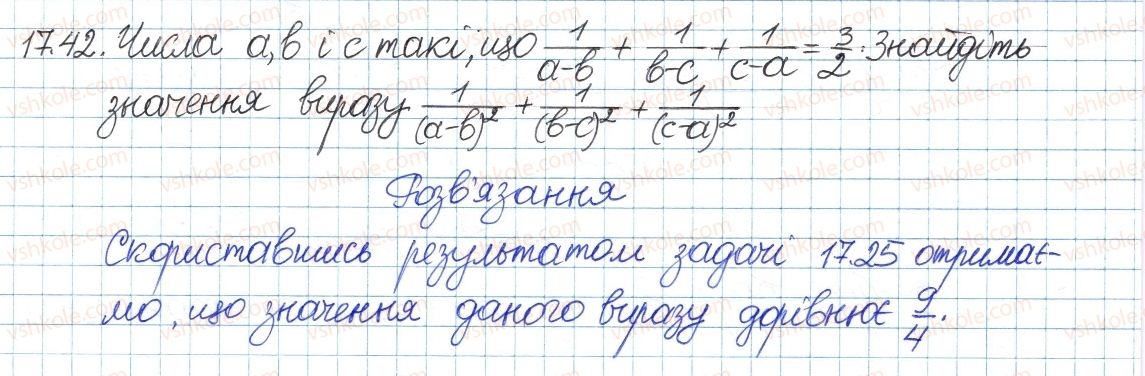 17.42. Числа a, b і c такі, що 1/(a-b) + 1/(b-c) + 1/(c-a) = 3/2. Знайдіть
значення виразу 1/(a-b)² + 1/(b-c)² + 1/(c-a)²
Розв'язання
Скориставшись результатом задачі 17.25 отримає-
мо, що значення даного виразу дорівнює 9/4.